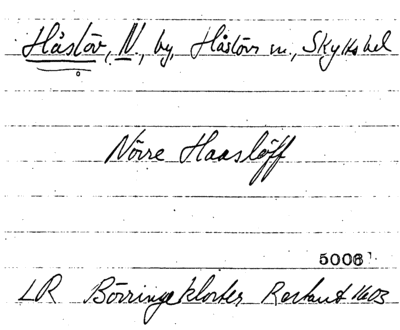 Håslöv, N., by, Håslövs sn, Skytts hd
Nörre Haaslöff
5006
LR Börringekloster Restant 1603